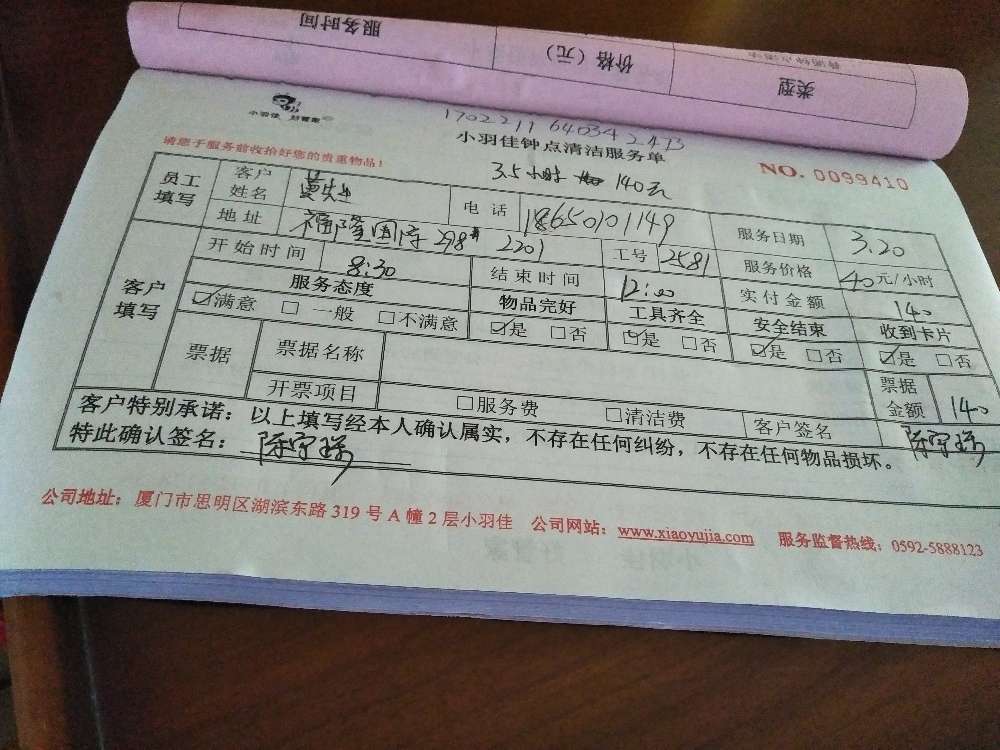 服务时间
价格（元）
类型
小羽佳 好管家
1702211640342473
小羽佳钟点清洁服务单
请您于服务前收拾好您的贵重物品！
NO. 0099410
3.5小时 140元
员工填写 客户姓名 电话 18650101149 服务日期 3.20
地址 福隆国际298# 2201 工号 2581 服务价格 40元/小时
客户填写 开始时间 8:30 结束时间 12:00 实付金额 140
服务态度 物品完好 工具齐全 安全结束 收到卡片
☑满意 □一般 □不满意 ☑是 □否 ☑是 □否 ☑是 □否 ☑是 □否
票据 票据名称 票据金额 140
开票项目 □服务费 □清洁费 客户签名 陈宇瑞
客户特别承诺：以上填写经本人确认属实，不存在任何纠纷，不存在任何物品损坏。
特此确认签名：陈宇瑞
公司地址：厦门市思明区湖滨东路319号A幢2层小羽佳 公司网站：www.xiaoyujia.com 服务监督热线：0592-5888123